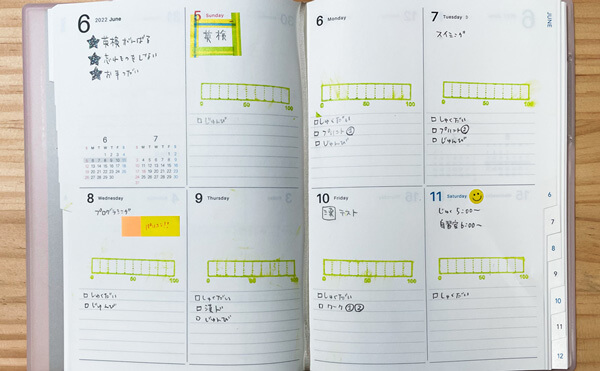 6 2022 June
英検がんばる
忘れものをしない
お手つだい
6
7
5 Sunday
英検
0 50 100
じゅんび
6 Monday
0 50 100
しゅくだい
プリント①
じゅんび
7 Tuesday
スイミング
0 50 100
しゅくだい
プリント②
じゅんび
JUNE
8 Wednesday
プログラミング
0 50 100
しゅくだい
じゅんび
9 Thursday
0 50 100
しゅくだい
漢ド
じゅんび
10 Friday
漢 テスト
0 50 100
しゅくだい
ワーク①②
11 Saturday
じゅく 5:00〜
自習室 6:00〜
0 50 100
しゅくだい
6
7
8
9
10
11
12